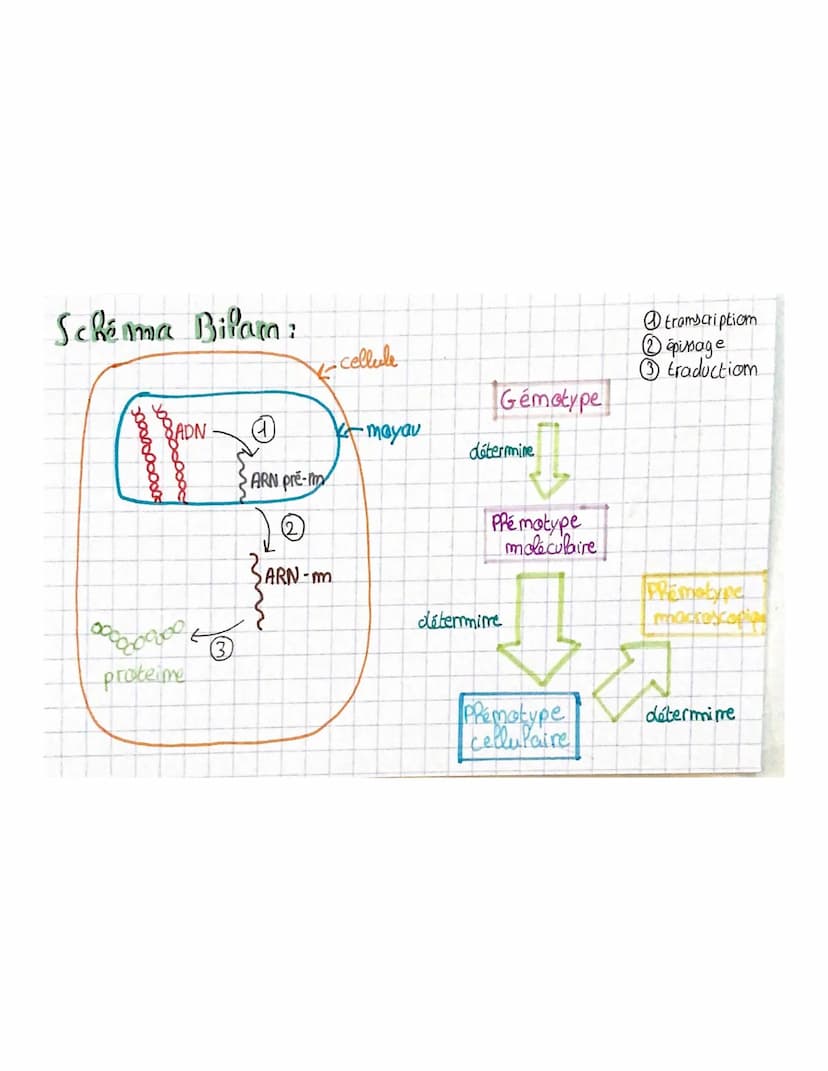 Schéma Bilan :
① transcription
② épissage
③ traduction
cellule
noyau
ADN
①
ARN pré-m
②
ARN-m
③
proteine
Génotype
détermine
Phénotype
moléculaire
détermine
Phénotype
cellulaire
détermine
Phénotype
macroscopiq